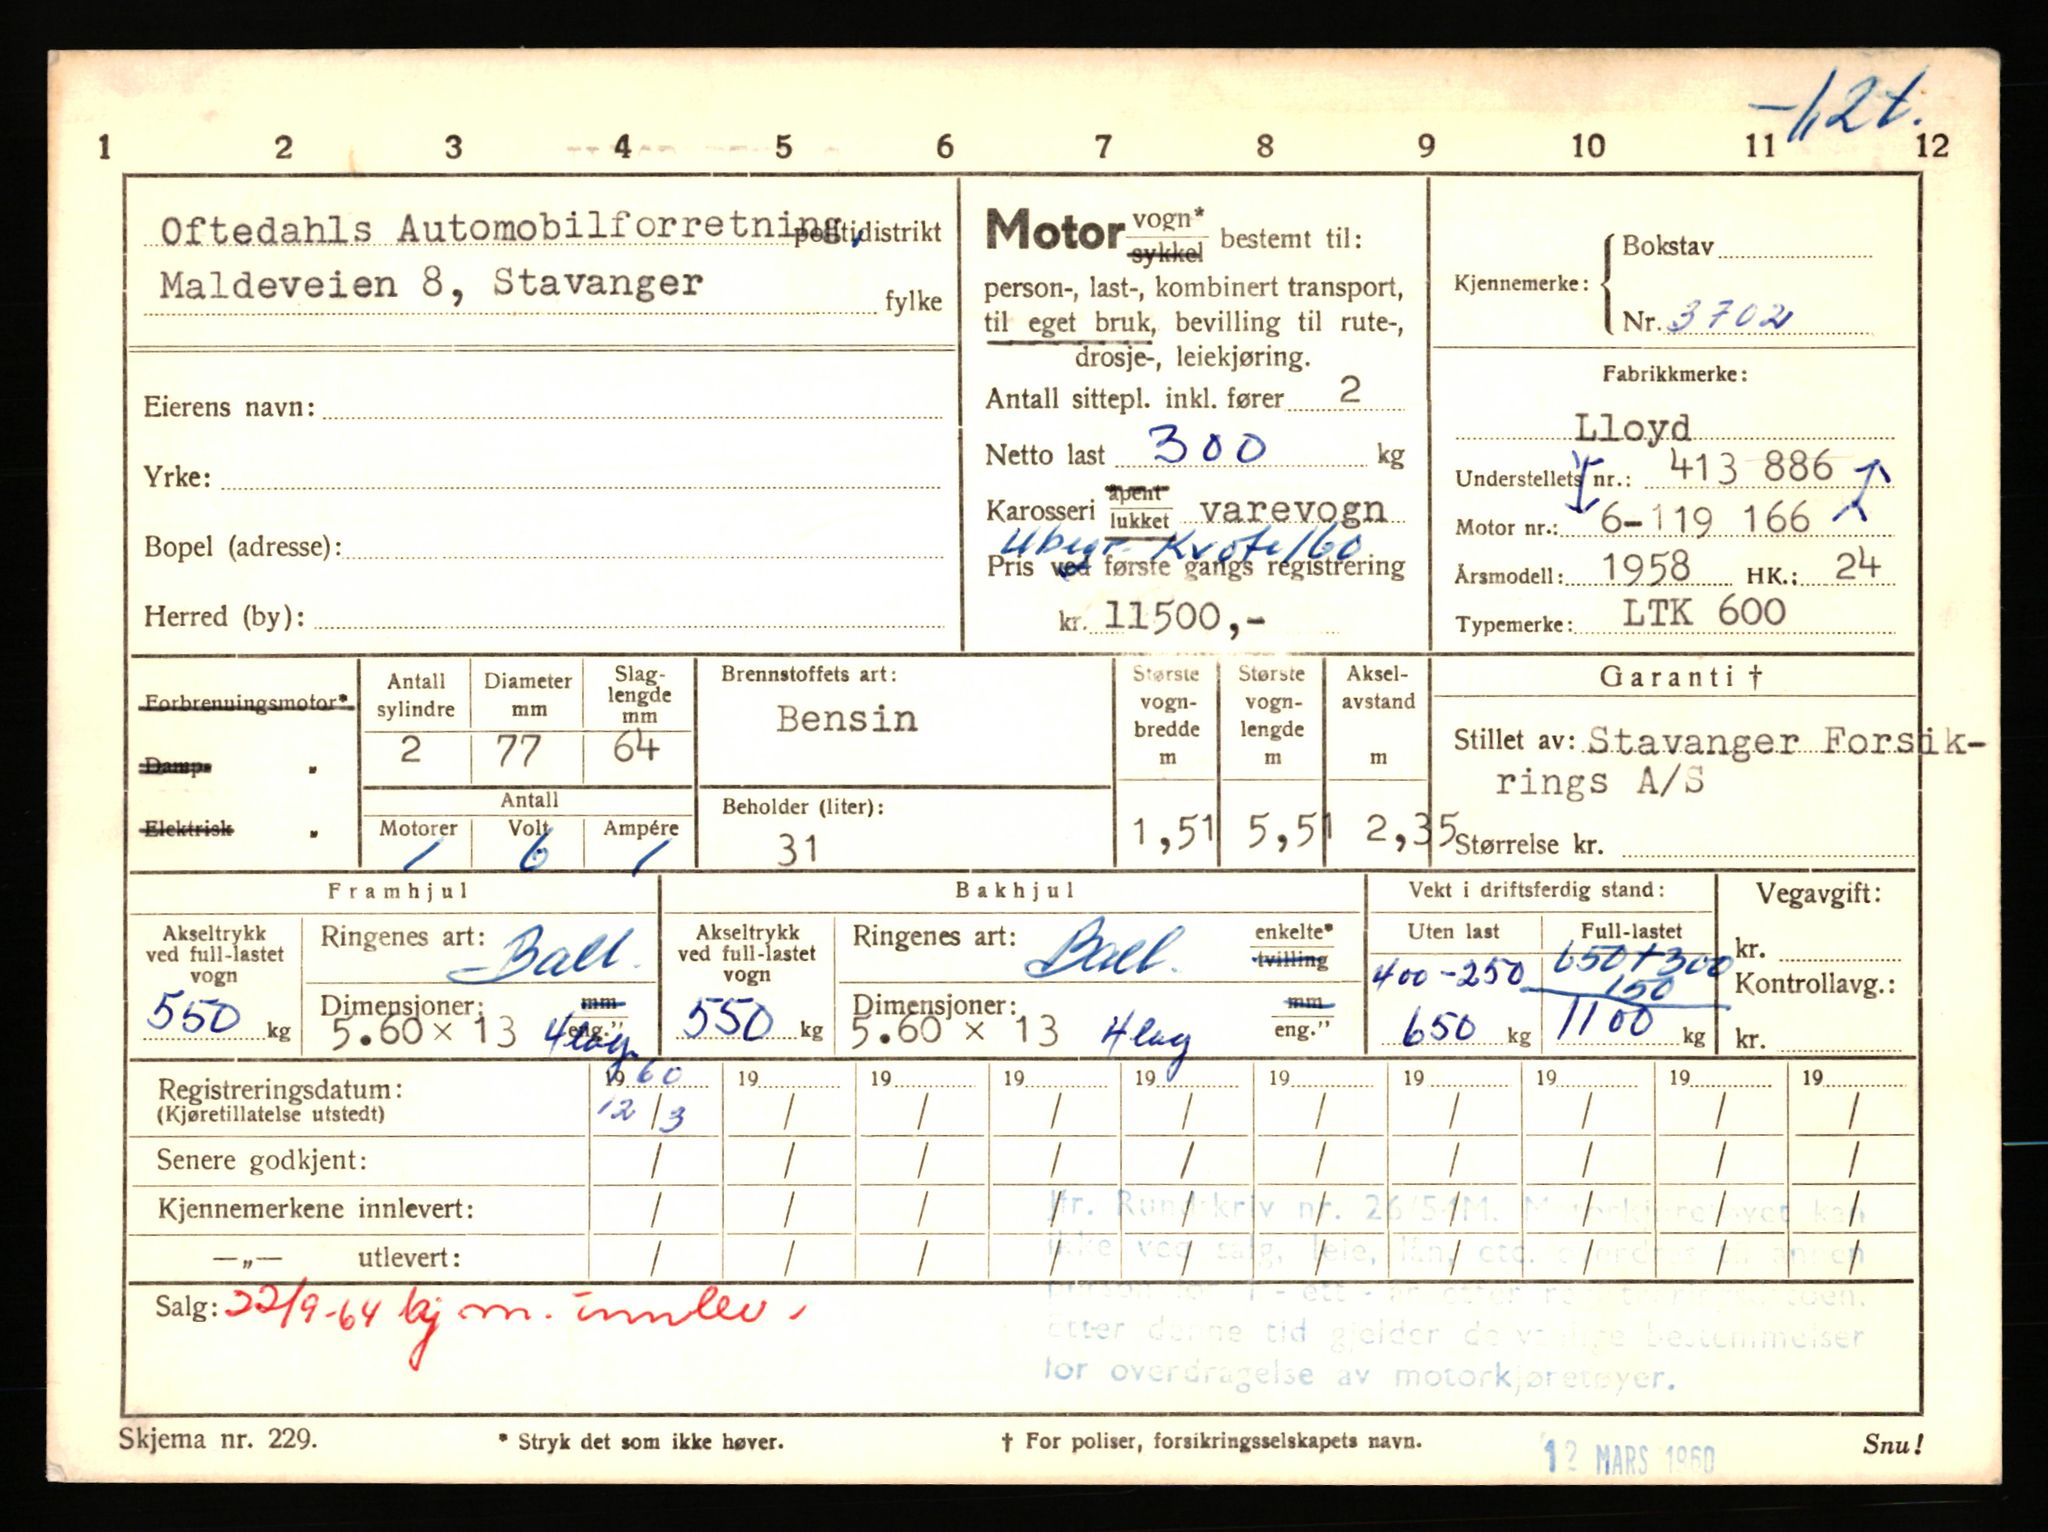 -1,2t.
1 2 3 4 5 6 7 8 9 10 11 12
Oftedahls Automobilforretning, politidistrikt
Maldeveien 8, Stavanger fylke
Eierens navn:
Yrke:
Bopel (adresse):
Herred (by):
Motor vogn* sykkel bestemt til:
person-, last-, kombinert transport,
til eget bruk, bevilling til rute-,
drosje-, leiekjøring.
Antall sittepl. inkl. fører 2
Netto last 300 kg
Karosseri åpent lukket varevogn
Ubegr. Kvote/60
Pris ved første gangs registrering
kr. 11500,-
Kjennemerke: Bokstav
Nr. 3702
Fabrikkmerke:
Lloyd
Understellets nr.: 413 886
Motor nr.: 6-119 166
Årsmodell: 1958 HK.: 24
Typemerke: LTK 600
Forbrenningsmotor*
Damp „
Elektrisk „
Antall sylindre
Diameter mm
Slag-lengde mm
2 77 64
Antall
Motorer Volt Ampére
1 6 1
Brennstoffets art:
Bensin
Beholder (liter):
31
Største vogn-bredde m
1,51
Største vogn-lengde m
5,51
Aksel-avstand m
2,35
Garanti †
Stillet av: Stavanger Forsik-
rings A/S
Størrelse kr.
Framhjul
Akseltrykk
ved full-lastet
vogn
550 kg
Ringenes art: Ball.
Dimensjoner: mm
5.60 × 13 4 lag eng."
Bakhjul
Akseltrykk
ved full-lastet
vogn
550 kg
Ringenes art: Ball. enkelte*
tvilling
Dimensjoner: mm
5.60 × 13 4 lag eng."
Vekt i driftsferdig stand:
Uten last Full-lastet
400-250 650+300
150
650 kg 1100 kg
Vegavgift:
kr.
Kontrollavg.:
kr.
Registreringsdatum: 1960 19 19 19 19 19 19 19 19 19
(Kjøretillatelse utstedt) 12/3 / / / / / / / / /
Senere godkjent: / / / / / / / / / /
Kjennemerkene innlevert: / / / / / / / / / /
—„— utlevert: / / / / / / / / / /
Jfr. Rundskriv nr. 26/54M. Motorkjøretøyet kan
ikke ved salg, leie, lån, etc. overdras til annen
person før 1 - ett - år etter registreringsdatoen.
Etter denne tid gjelder de vanlige bestemmelser
for overdragelse av motorkjøretøyer.
Salg: 22/9-64 kj m. innlev.
Skjema nr. 229. * Stryk det som ikke høver. † For poliser, forsikringsselskapets navn. Snu!
12 MARS 1960